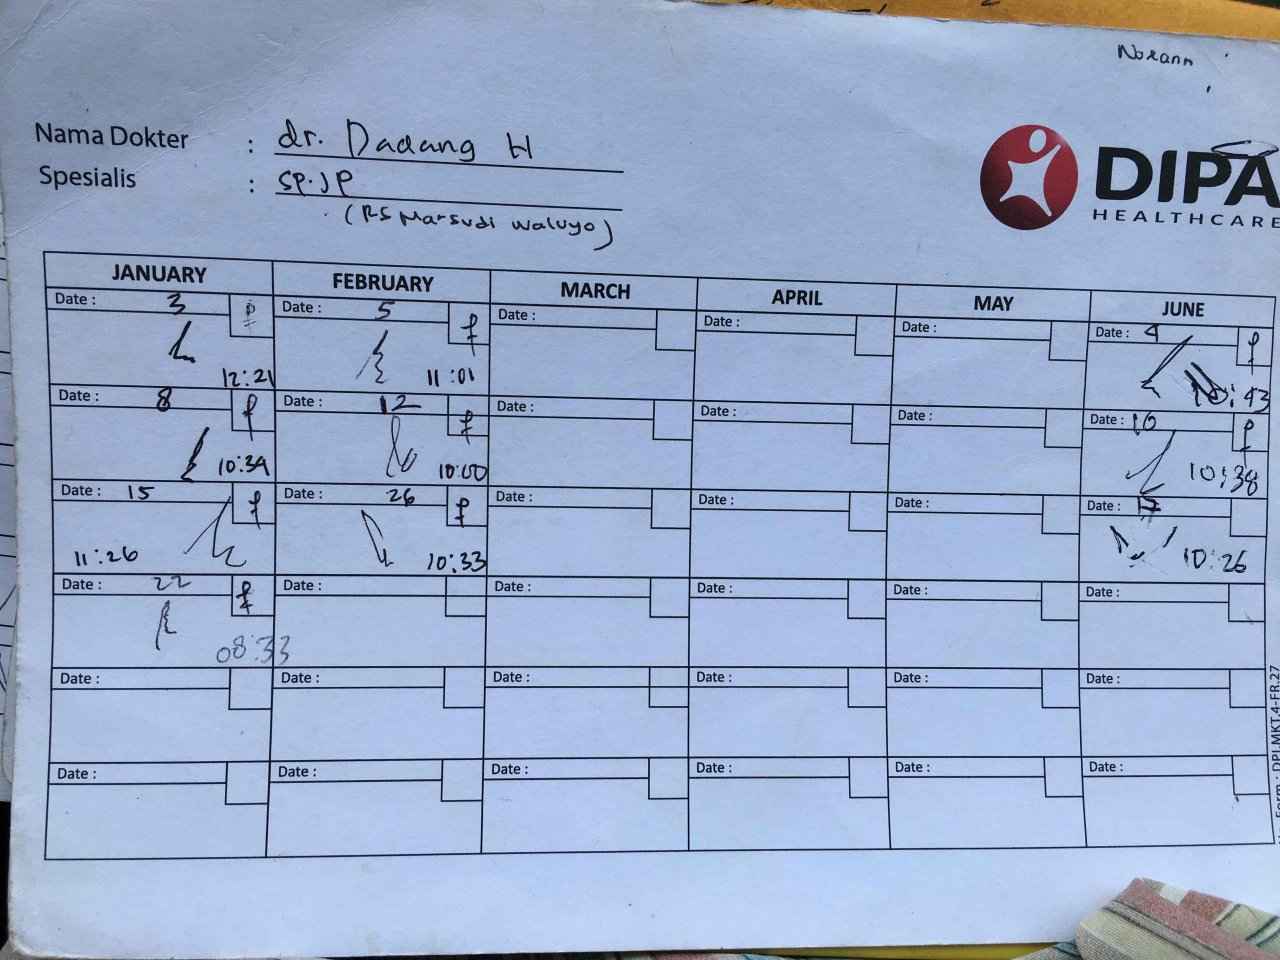 Norann
Nama Dokter : dr. Dadang H
Spesialis : SP.JP
(RS Marsudi Waluyo)
DIPA
HEALTHCARE
JANUARY FEBRUARY MARCH APRIL MAY JUNE
Date : 3 Date : 5 f Date : Date : Date : Date : 4 f
12:21 11:01 10:43
Date : 8 f Date : 12 f Date : Date : Date : Date : 10 f
10:34 10:00 10:38
Date : 15 f Date : 26 f Date : Date : Date : Date : 17
11:26 10:33 10:26
Date : 22 f Date : Date : Date : Date : Date :
08:33
Date : Date : Date : Date : Date : Date :
Date : Date : Date : Date : Date : Date :
Form : DPI-MKT.4-FR.27